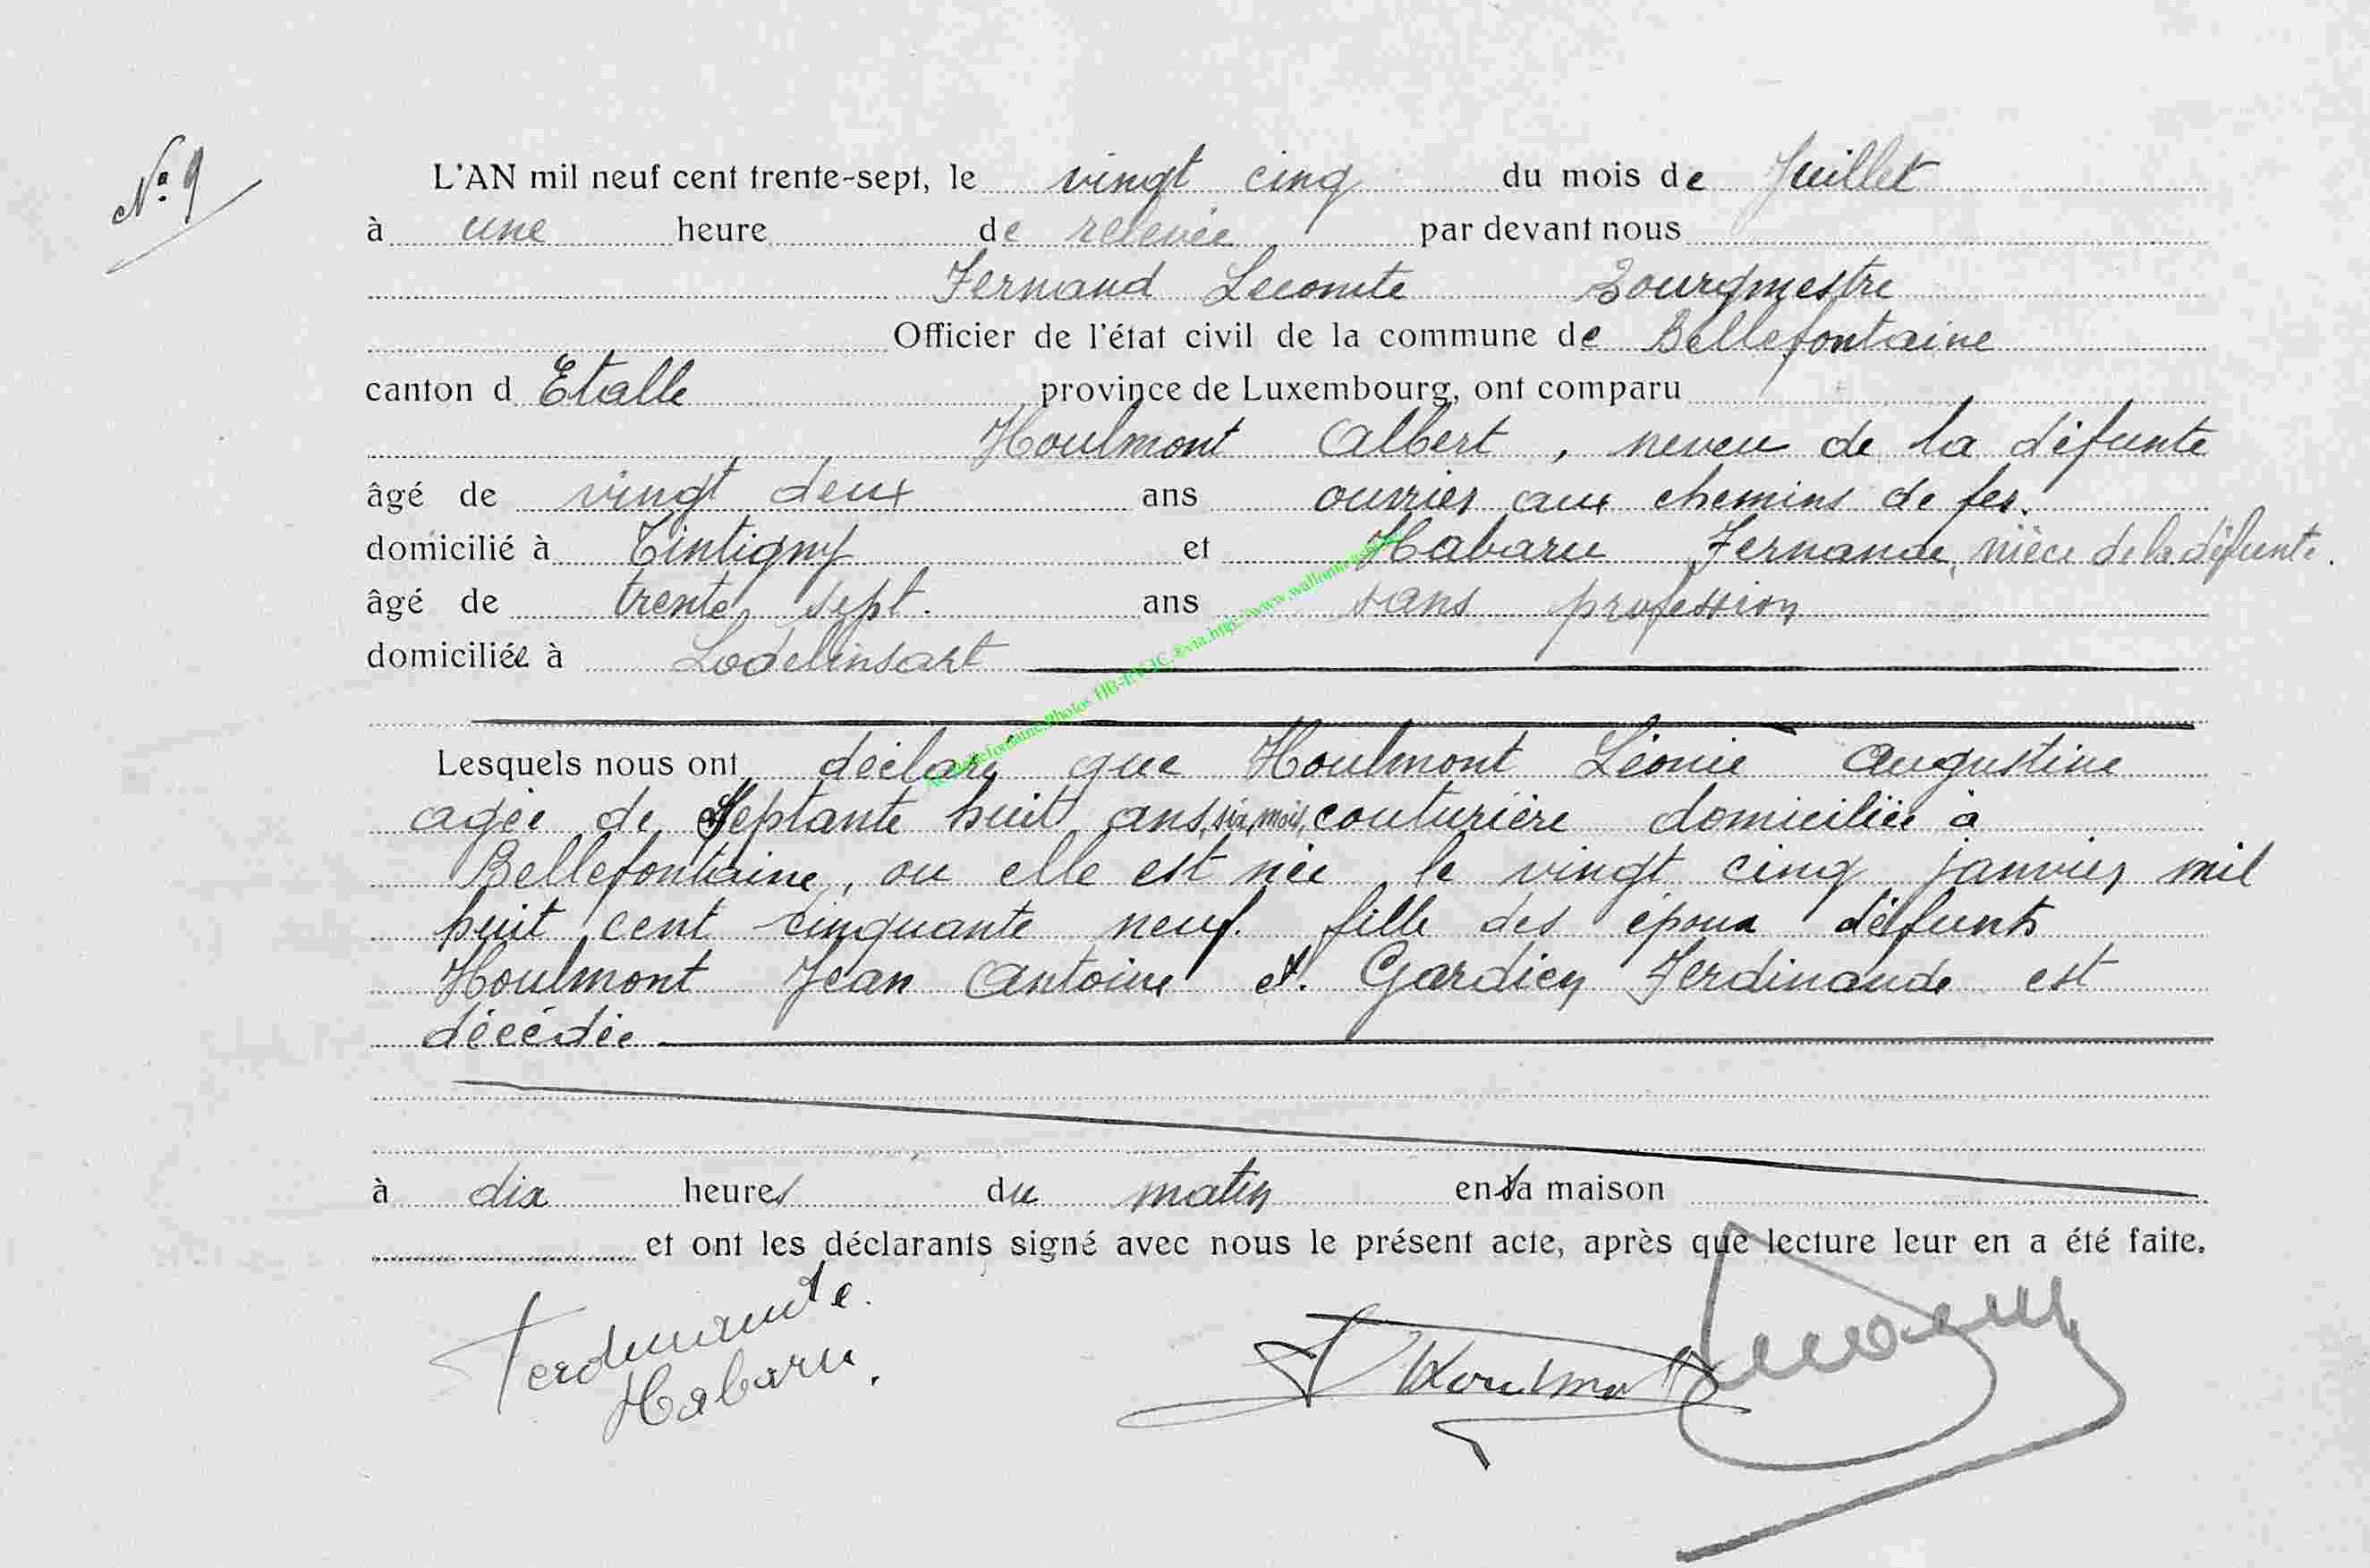 N° 9
L'AN mil neuf cent trente-sept, le vingt cinq du mois de Juillet
à une heure de relevée par devant nous
Fernand Lecomte Bourgmestre
Officier de l'état civil de la commune de Bellefontaine
canton d Etalle province de Luxembourg, ont comparu
Houlmont Albert, neveu de la défunte
âgé de vingt deux ans ouvrier aux chemins de fer.
domicilié à Tintigny et Habaru Fernande, nièce de la défunte.
âgé de trente sept. ans sans profession
domiciliée à Lodelinsart
Lesquels nous ont déclaré que Houlmont Léonie Augustine
agée de septante huit ans, six mois, couturière domiciliée à
Bellefontaine, ou elle est née le vingt cinq janvier mil
huit cent cinquante neuf. fille des époux défunts
Houlmont Jean Antoine et. Gardien Ferdinande est
décédée
à dix heures du matin en sa maison
et ont les déclarants signé avec nous le présent acte, après que lecture leur en a été faite.
Ferdinande. Houlmont
Habaru.